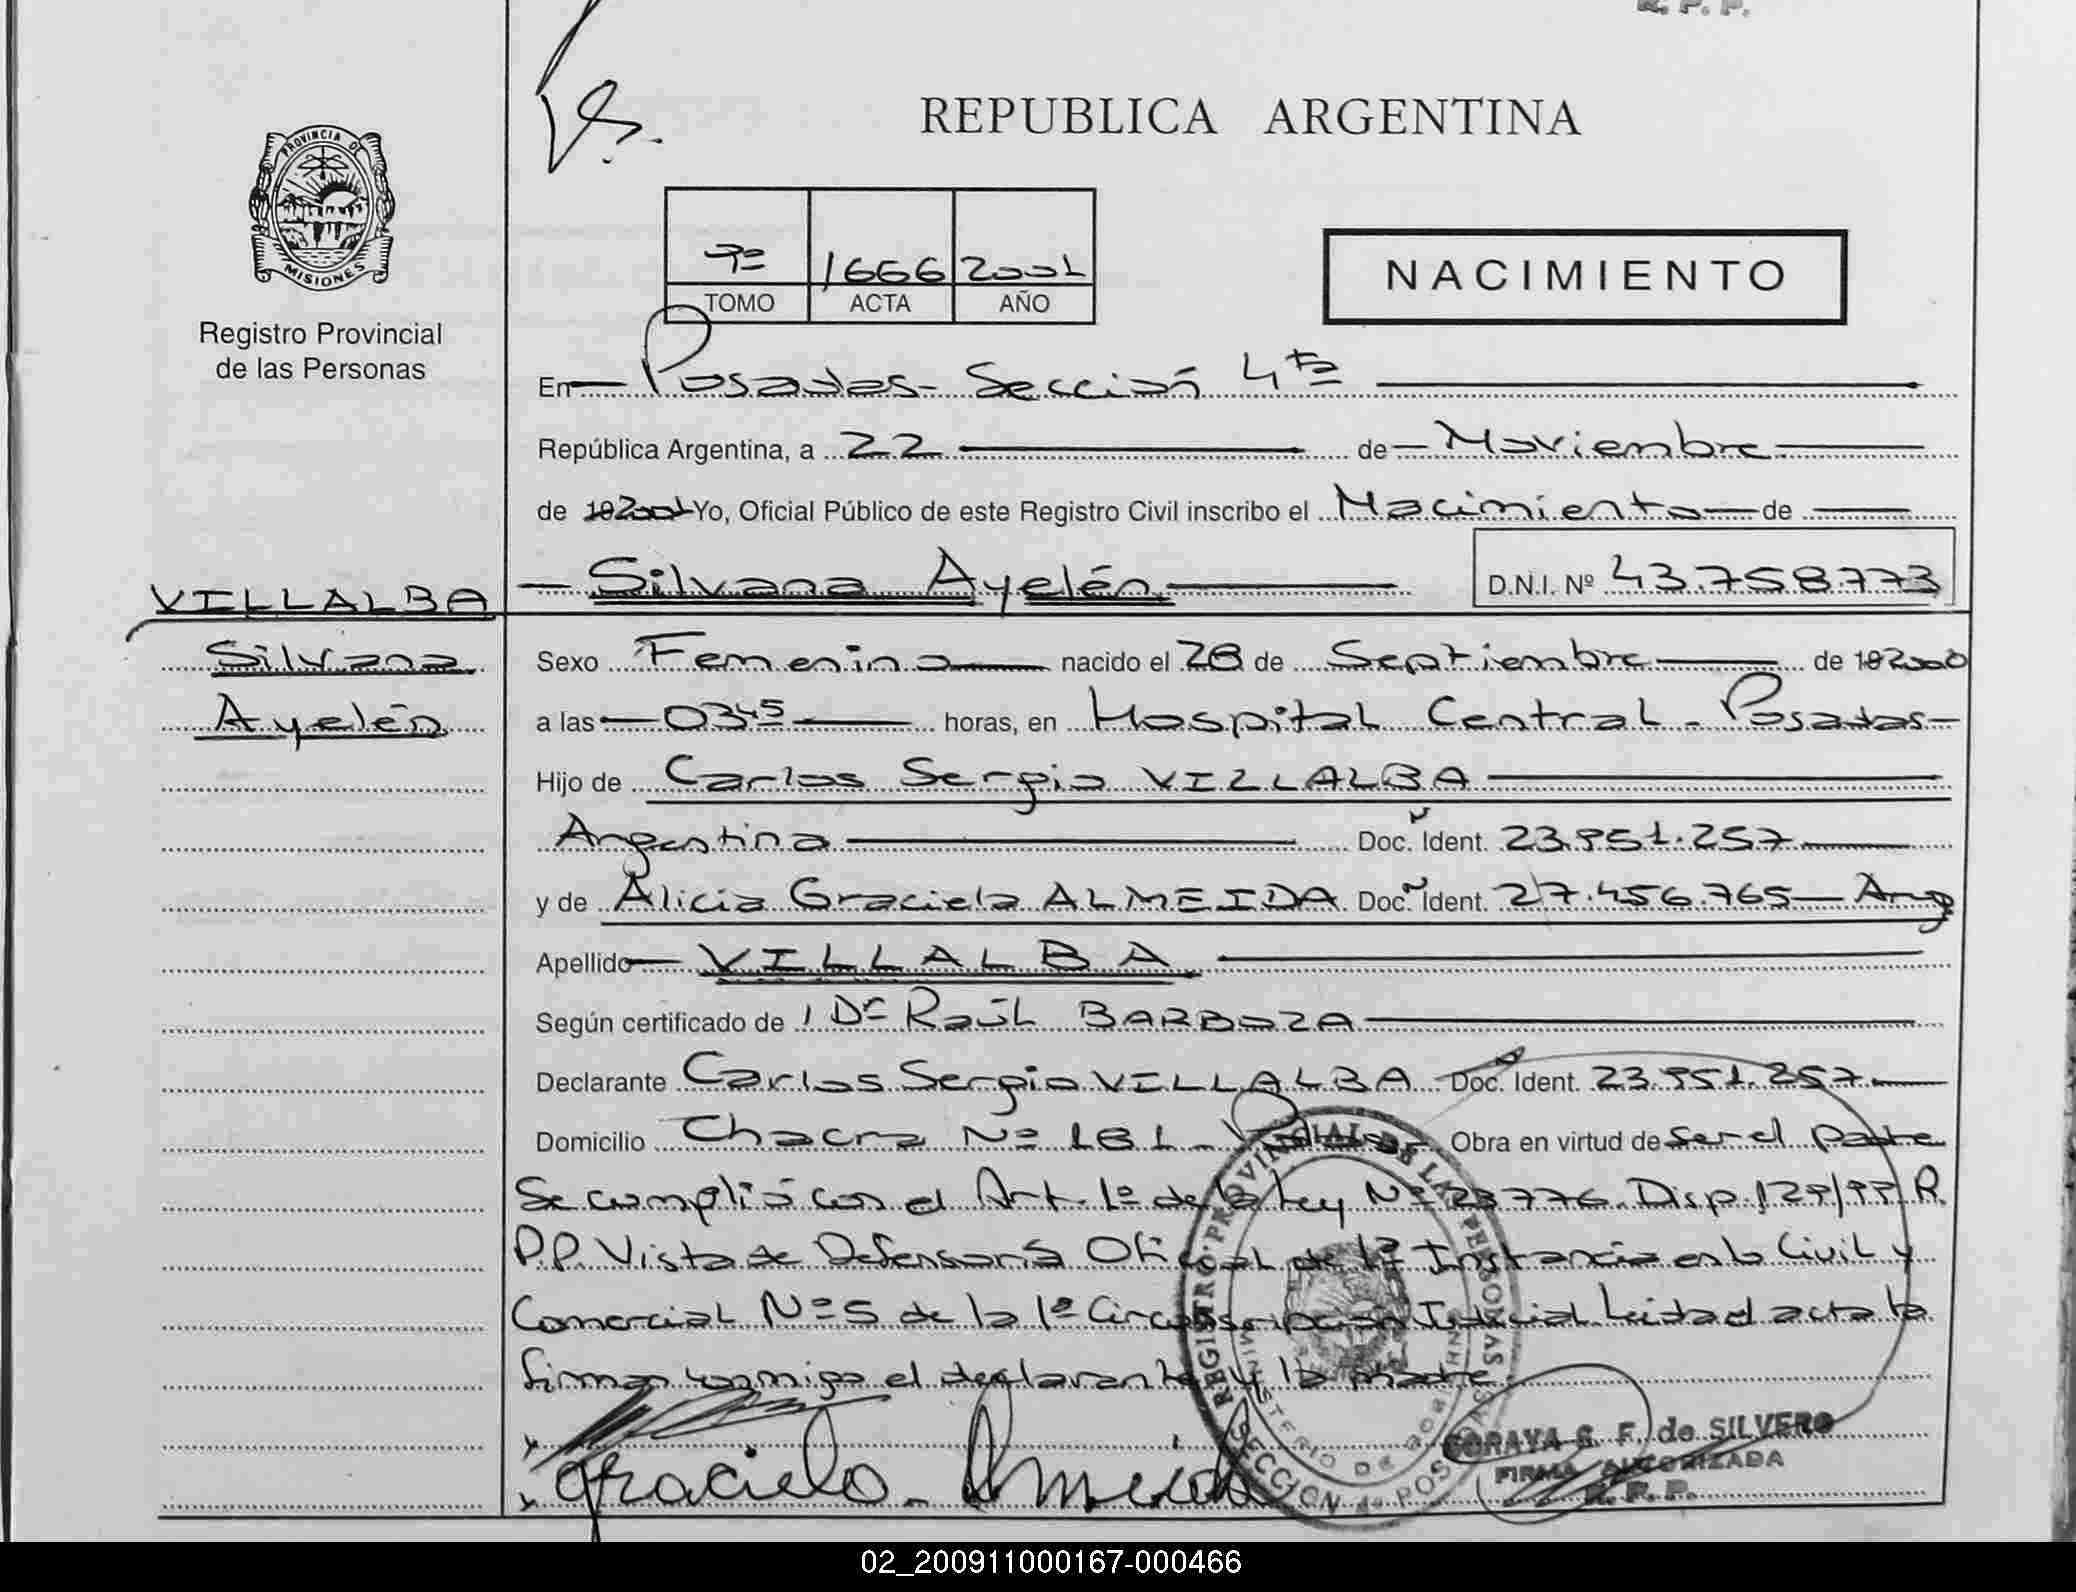 R. P. P.
REPUBLICA ARGENTINA
PROVINCIA DE
MISIONES
Registro Provincial
de las Personas
7º 1666 2001
TOMO ACTA AÑO
NACIMIENTO
En Posadas - Sección 4ta
República Argentina, a 22 de Noviembre
de 19 2001 Yo, Oficial Público de este Registro Civil inscribo el Nacimiento de
Silvana Ayelén D.N.I. Nº 43.758.773
VILLALBA
Silvana
Ayelén
Sexo Femenino nacido el 28 de Septiembre de 19 2000
a las 03 45 horas, en Hospital Central - Posadas -
Hijo de Carlos Sergio VILLALBA
Argentino Doc. Ident. 23.951.257
y de Alicia Graciela ALMEIDA Doc. Ident. 27.456.765 - Arg
Apellido VILLALBA
Según certificado de Dr Raúl BARBOZA
Declarante Carlos Sergio VILLALBA Doc. Ident. 23.951.257
Domicilio Chacra Nº 181 - Posadas - Obra en virtud de ser el padre
Se cumplió con el Art. 1º de la Ley Nº 23776. Disp. 129/99 R.
P.P. Vista de Defensoría Oficial de 1ª Instancia en lo Civil y
Comercial Nº 5 de la 1º Circunscripción Judicial Leida el acta la
firman conmigo el declarante y la madre
Graciela Almeida
REGISTRO PROVINCIAL DE LAS PERSONAS
MINISTERIO DE GOBIERNO
SECCION 4ª POSADAS
SORAYA C. F. de SILVERO
FIRMA AUTORIZADA
R. P. P.
02_200911000167-000466